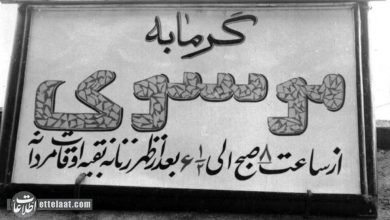 گرمابه
موسوی
از ساعت ۸ صبح الی ۶ ۱/۲ بعد از ظهر زنانه بقیه اوقات مردانه
اطلاعات ettelaat.com